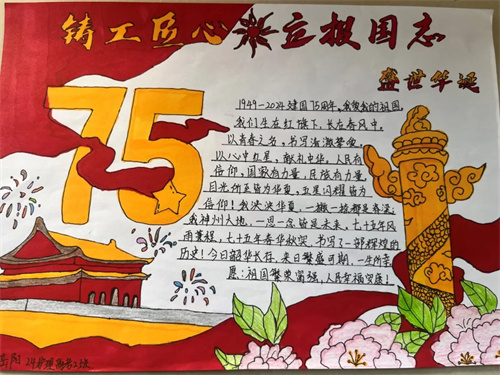 铸工匠心 立报国志
盛世华诞
75
1949-2024建国75周年,我爱我的祖国,
我们生在红旗下,长在春风中。
以青春之名,书写浩瀚梦想,
以心中五星,献礼中华,人民有
信仰,国家有力量,民族有力量,
目光所至皆为华夏,五星闪耀皆为
信仰!我泱泱华夏,一撇一捺都是脊梁,
我神州大地,一思一念皆是未来,七十五年风
雨兼程,七十五年春华秋实,书写了一部辉煌的
历史!今日韶华长存,来日繁盛可期,一生所幸
愿:祖国繁荣富强,人民幸福安康!